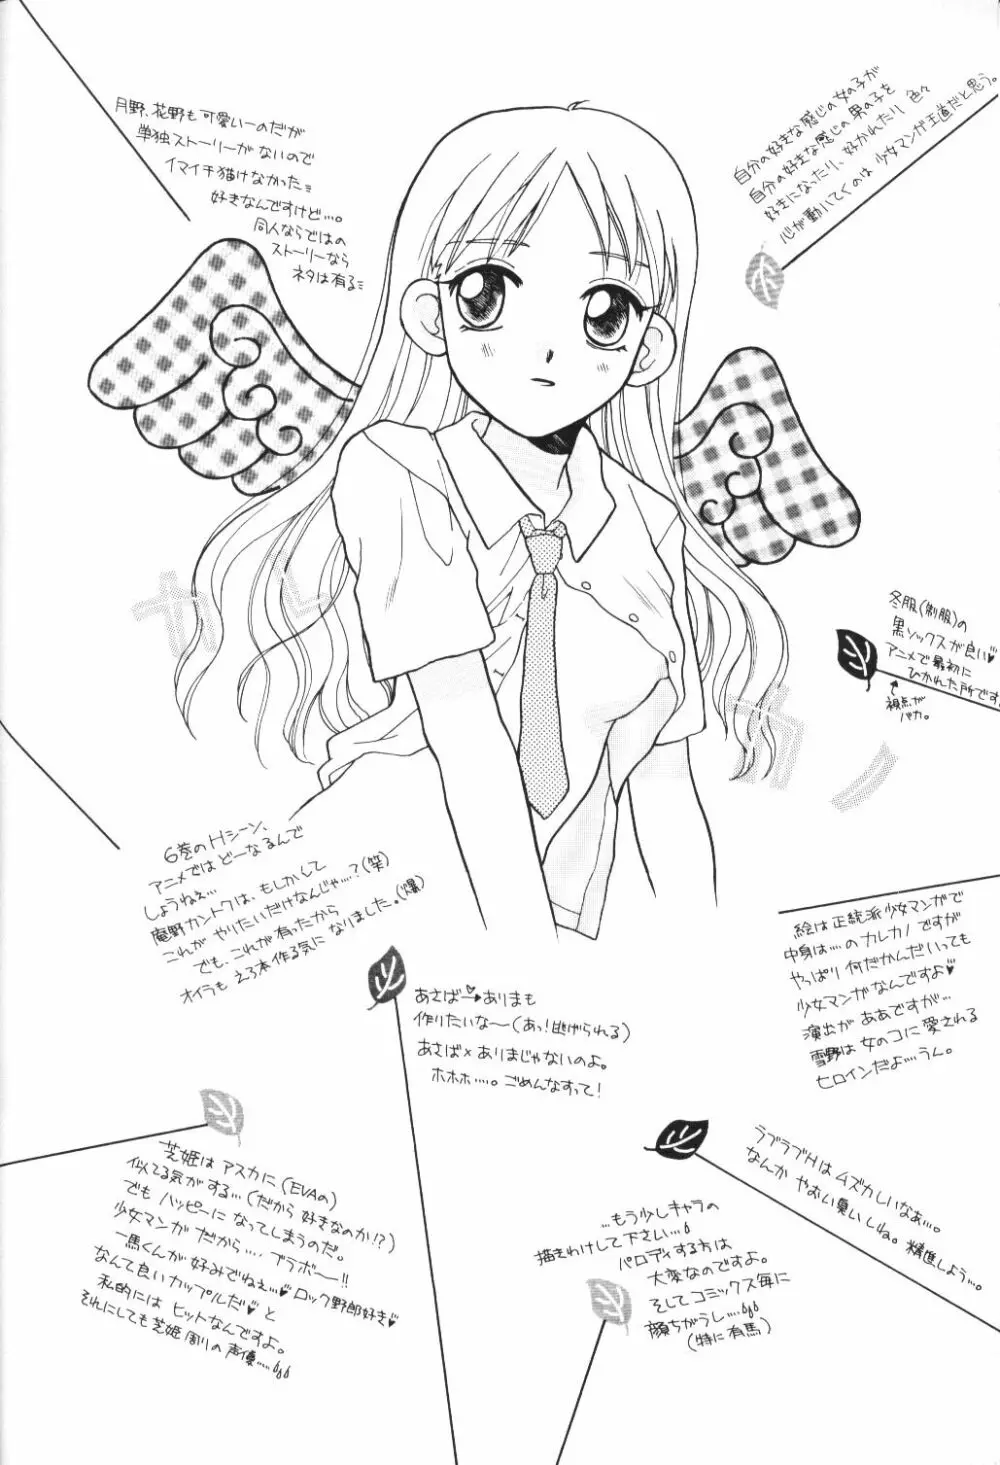 月野、花野も可愛いーのだが
単独ストーリーがないので
イマイチ描けなかった
好きなんですけど…。
同人ならではの
ストーリーなら
ネタは有る
自分の好きな感じの女の子が
自分の好きな感じの男の子を
好きになったり、好かれたり 色々
心が動いてくのは 少女マンガ王道だと思う。
冬服(制服)の
黒ソックスが良い♥
アニメで最初に
ひかれた所です。
視点が
バカ。
カレ
カノ
6巻のHシーン、
アニメではどーなるんで
しょうねぇ…
庵野カントクは、もしかして
これが やりたいだけなんじゃ…?(笑)
でも、これが有ったから
オイラも えろ本作る気に なりました。(爆)
絵は正統派少女マンガで
中身は…のカレカノですが
やっぱり何だかんだいっても
少女マンガなんですよ♥
演出が ああですが…
雪野は 女のコに愛される
ヒロインだよ…うん。
あさば♥ありまも
作りたいな〜(あっ!逃げられる)
あさば×ありまじゃないのよ。
ホホホ…。ごめんなすって!
芝姫は アスカに(EVAの)
似てる気がする…(だから 好きなのか!?)
でも ハッピーに なってしまうのだ。
少女マンガ だから…. ブラボー!!
一馬くんが 好みでねぇ…♥ロック野郎好き♥
なんて良いカップルだ♥ と
私的には ヒットなんですよ。
それにしても芝姫 周りの 声優…
ラブラブHは ムズカしいなぁ…。
なんか やおい臭い しね。精進しよう…。
…もう少しキャラの
描きわけして下さい…
パロディする方は
大変なのですよ。
そしてコミックス毎に
顔ちがうし…
(特に有馬)